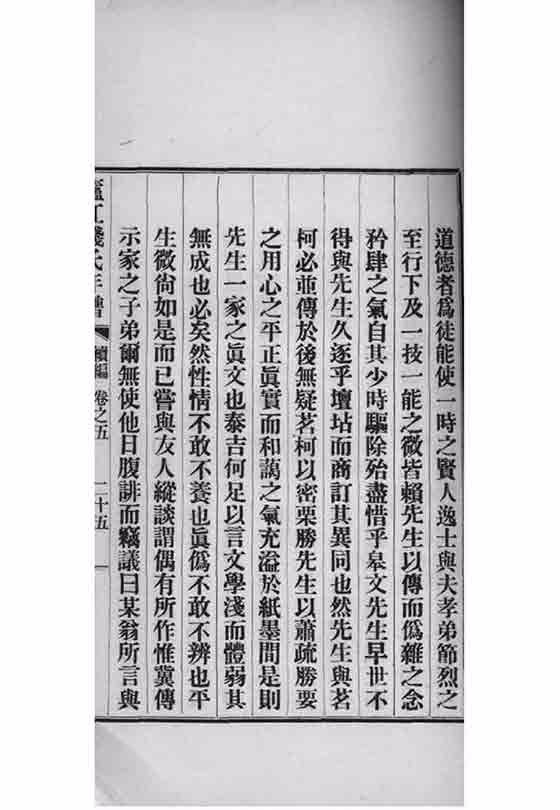 道德者爲徒能使一時之賢人逸士與夫孝弟節烈之
至行下及一技一能之微皆賴先生以傳而僞雜之念
矜肆之氣自其少時驅除殆盡惜乎皋文先生早世不
得與先生久逐乎壇坫而商訂其異同也然先生與茗
柯必並傳於後無疑茗柯以密栗勝先生以蕭疏勝要
之用心之平正眞實而和藹之氣充溢於紙墨間是則
先生一家之眞文也泰吉何足以言文學淺而體弱其
無成也必矣然性情不敢不養也眞僞不敢不辨也平
生微尙如是而已嘗與友人縱談謂偶有所作惟冀傳
示家之子弟爾無使他日腹誹而竊議曰某翁所言與
續編 卷之五 二十五